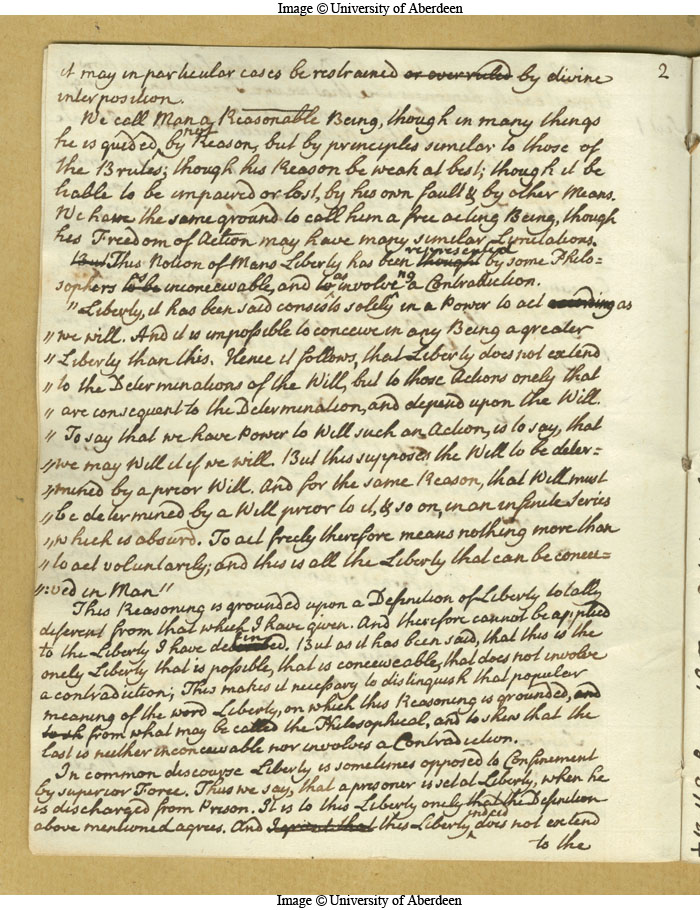 Image © University of Aberdeen
2
it may in particular cases be restrained or over ruled by divine
interposition.
We call Man a Reasonable Being, though in many things
he is guided by not Reason, but by principles similar to those of
the Brutes; though his Reason be weak at best; though it be
liable to be impaired or lost, by his own fault & by other Means.
We have the same ground to call him a free acting Being, though
his Freedom of Action may have many similar Limitations.
But This Notion of Mans Liberty has been thought represented by some Philo=
sophers to be as inconceivable, and to as involve ng a Contradiction.
"Liberty, it has been said consists solely in a Power to act according as
" we will. And it is impossible to conceive in any Being a greater
" Liberty than this. Hence it follows, that Liberty does not extend
" to the Determinations of the Will, but to those Actions onely that
" are consequent to the Determination, and depend upon the Will.
" To say that we have Power to Will such an Action, is to say, that
" we may Will it if we will. But this supposes the Will to be deter=
" mined by a prior Will. And for the same Reason, that Will must
" be determined by a Will prior to it, & so on, in an infinite series
" which is absurd. To act freely therefore means nothing more than
" to act voluntarily; and this is all the Liberty that can be concei=
" :ved in Man"
This Reasoning is grounded upon a Definition of Liberty totally
diferent from that which I have given. And therefore cannot be applied
to the Liberty I have defined. But as it has been said, that this is the
onely Liberty that is possible, that is conceiveable, that does not involve
a contradiction; This makes it necessary to distinguish that popular
meaning of the word Liberty, on which this Reasoning is grounded, and
to sh from what may be called the Philosophical, and to shew that the
last is neither inconceivable nor involves a Contradiction.
In common discourse Liberty is sometimes opposed to Confinement
by superior Force. Thus we say, that a prisoner is set at Liberty, when he
is discharged from Prison. It is to this Liberty onely that the Definition
above mentioned agrees. And I grant that this Liberty indeed does not extend
to the
Image © University of Aberdeen